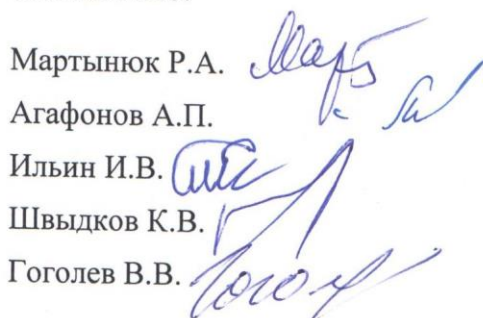 Мартынюк Р.А.
Агафонов А.П.
Ильин И.В.
Швыдков К.В.
Гоголев В.В.